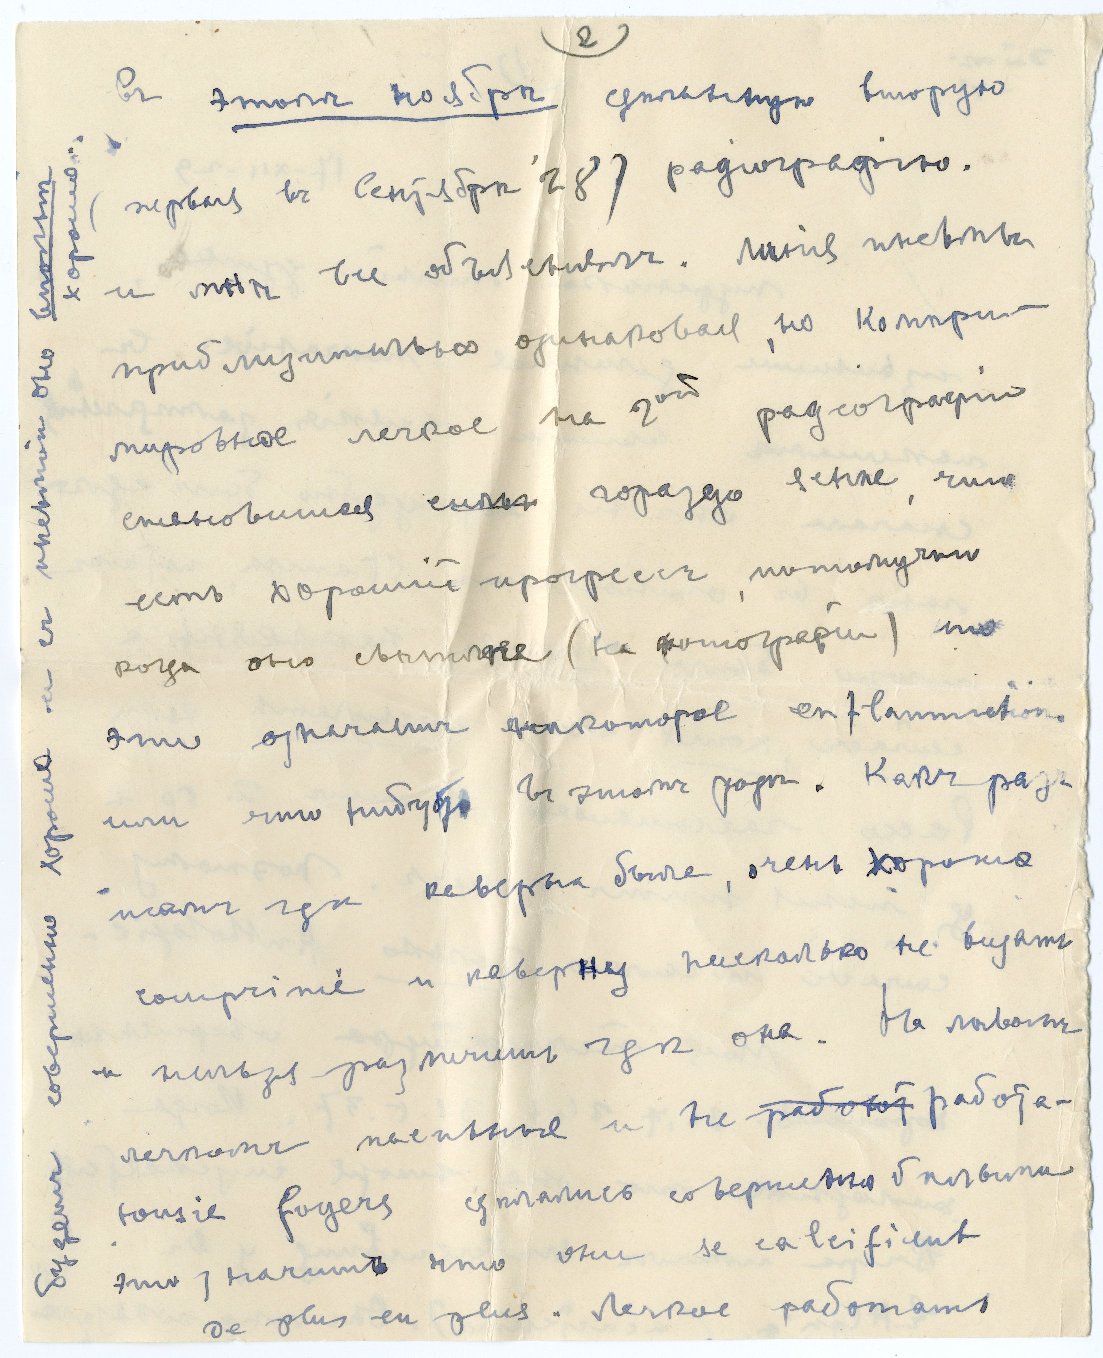 2
въ этомъ ноябрѣ сдѣланную вторую
(первая въ Сентябрѣ '28) радіографію.
и мнѣ все объяснилъ. Линія
приблизительно одинаковая, но компри-
мированое легкое на 2ой радіографіи
становится гораздо яснѣе, что
есть хорошій прогрессъ, потомучто
когда оно свѣтлѣе (на фотографіи) то
это означаетъ нѣкоторое enflammation
или что нибудь въ этомъ родѣ. Какъ разъ
тамъ гдѣ каверна была, очень хорошо
comprimé и каверну нисколько не видать
и нельзя различить гдѣ она. На лѣвомъ
легкомъ пасивные и не работают работа-
ющіе foyers сдѣлались совершенно бѣлыми
это значитъ что они se calcifient
de plus en plus. Легкое работать
будетъ совершенно хорошо и съ оно вполнѣ
хорошо.